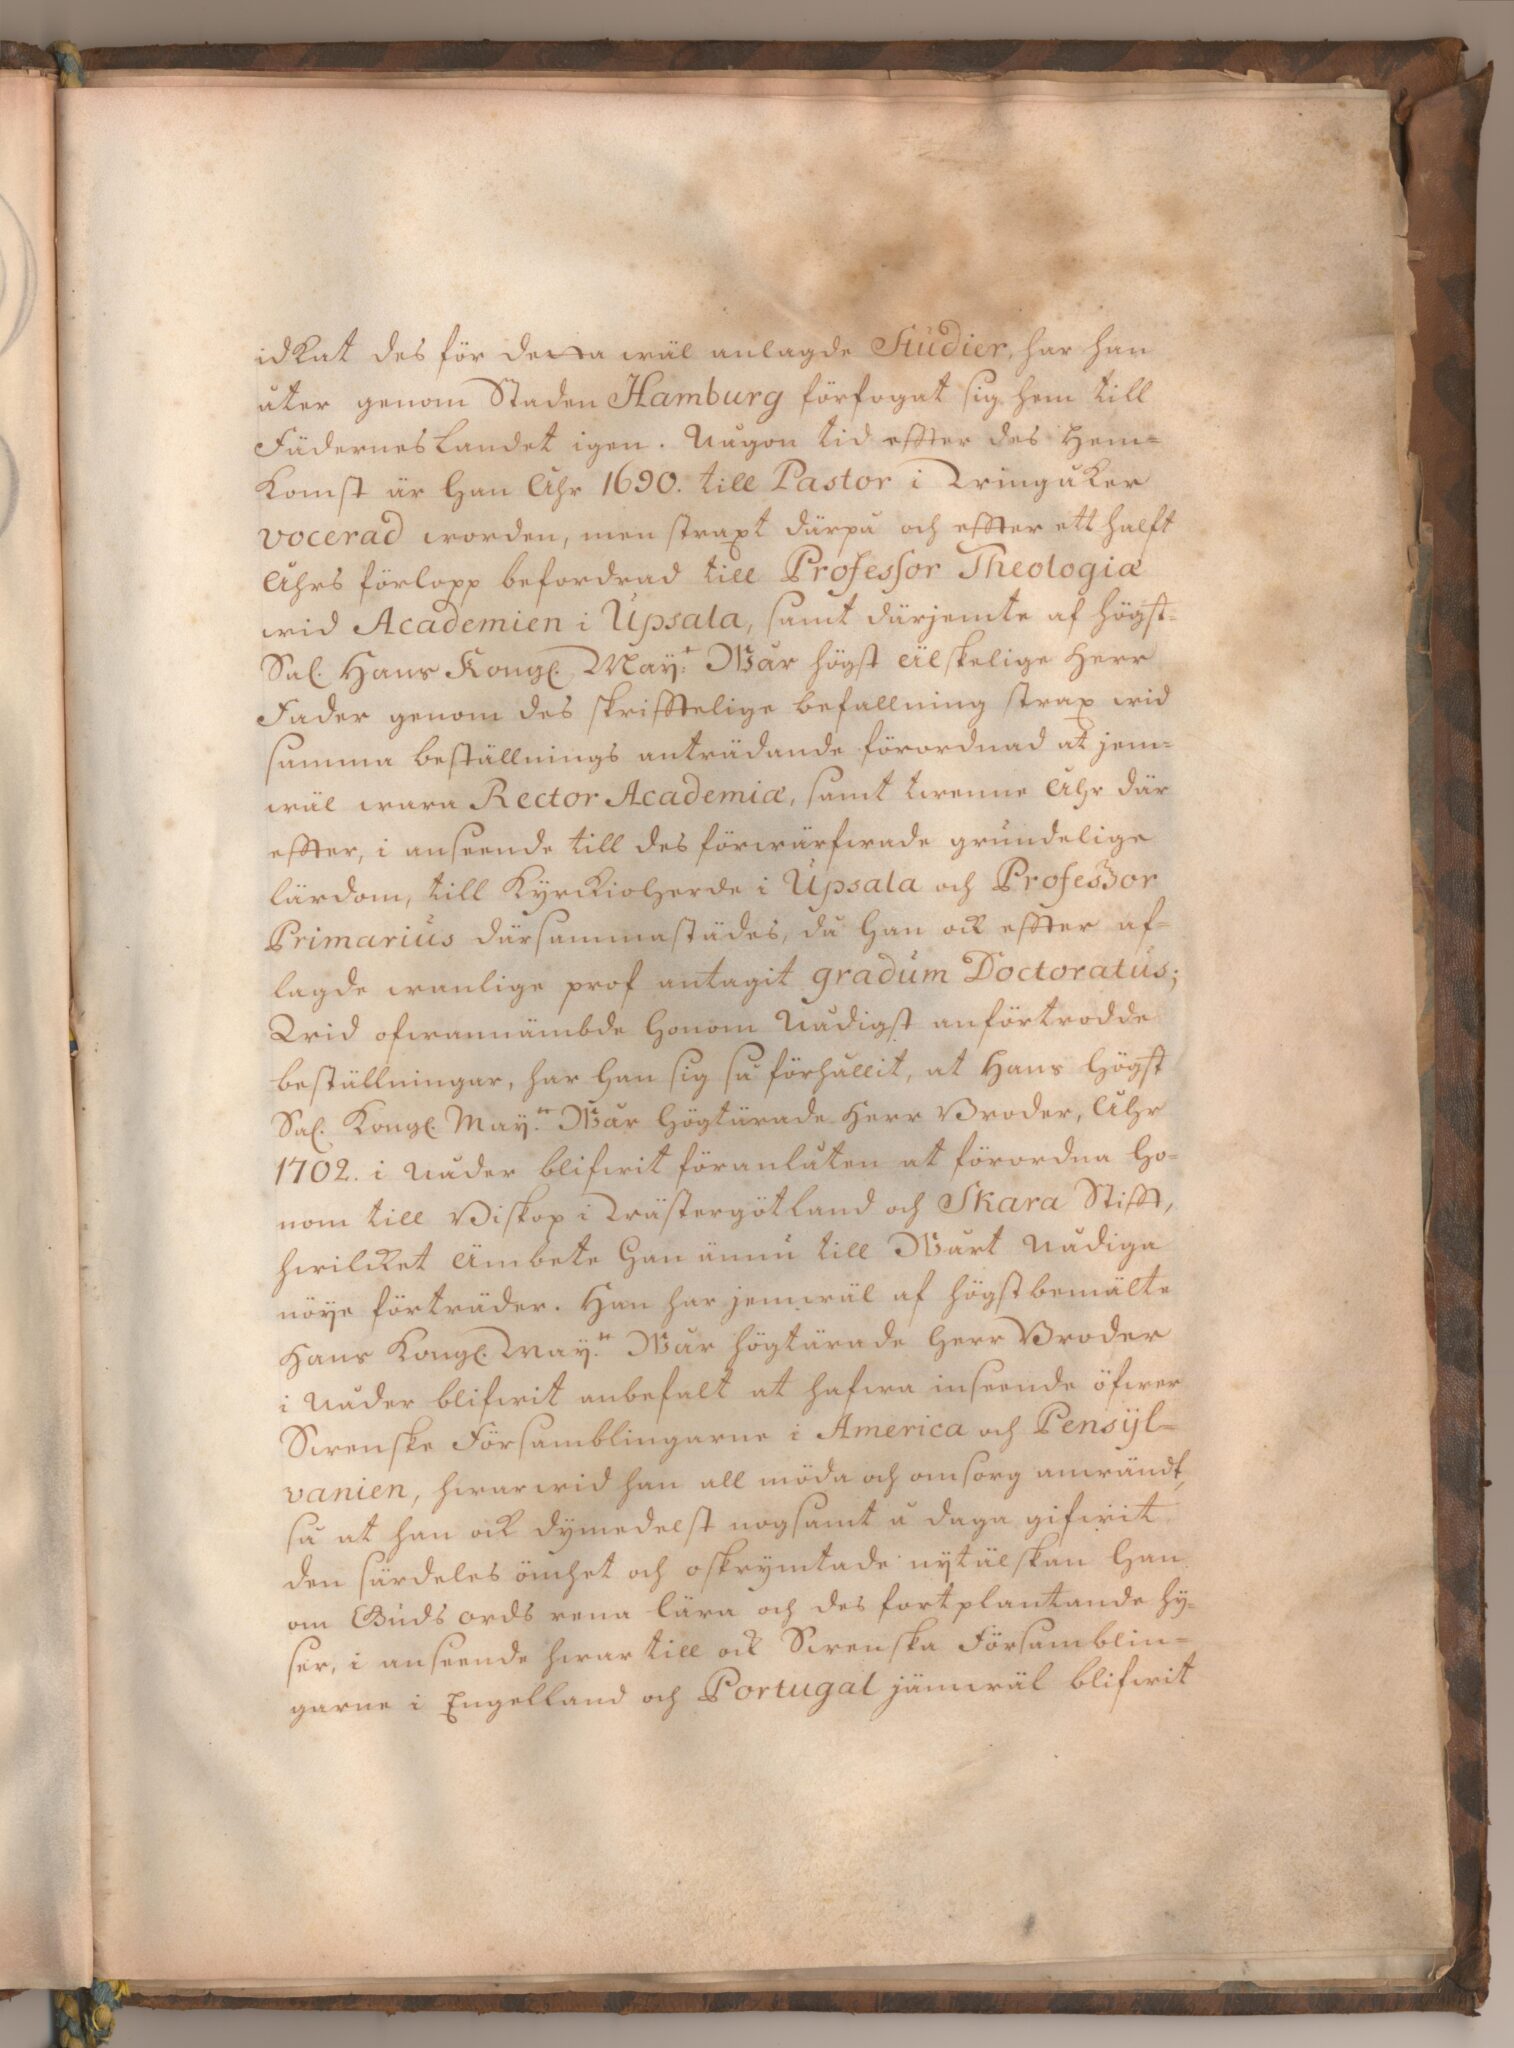 idkat des för detta wäl anlagde Studier, har han
åter genom Staden Hamburg förfogat sig hem till
Fäderneslandet igen. Någon tid effter des Hem=
komst är Han Åhr 1690. till Pastor i Wingåker
vocerad worden, men straxt därpå och effter ett halft
Åhrs förlopp befordrad till Professor Theologiæ
wid Academien i Upsala, samt därjemte af högst=
Sal. Hans Kongl. May:t Wår högst älskelige Herr
Fader genom des skrifftelige befallning strax wid
samma beställnings anträdande förordnad at jem=
wäl wara Rector Academiæ, samt twenne Åhr där
effter, i anseende till des förwärfwade grundelige
lärdom, till Kyrckioherde i Upsala och Professor
Primarius därsammastädes, då Han ock effter af=
lagde wanlige prof antagit gradum Doctoratus;
Wid ofwannämbde honom Nådigst anförtrodde
beställningar, har Han sig så förhållit, at Hans Högst
Sal. Kongl. May:tt Wår Högtärade Herr Broder, Åhr
1702. i Nåder blifwit föranlåten at förordna Ho=
nom till Biskop i Wästergötland och Skara Stifft,
hwilcket Ämbete Han ännu till Wårt Nådiga
nöye förträder. Han har jemwäl af högstbemälte
Hans Kongl. May:tt Wår högtärade Herr Broder
i Nåder blifwit anbefalt at hafwa inseende öfwer
Swenske Församblingarne i America och Pensyl=
vanien, hwarwid han all möda och omsorg anwändt,
så at han ock dymedelst nogsamt å daga gifwit
den särdeles ömhet och oskrymtade nytälskan Han
om Guds ords rena lära och des fortplantande hy=
ser, i anseende hwartill ock Swenska Församblin=
garne i Engelland och Portugal jämwäl blifwit